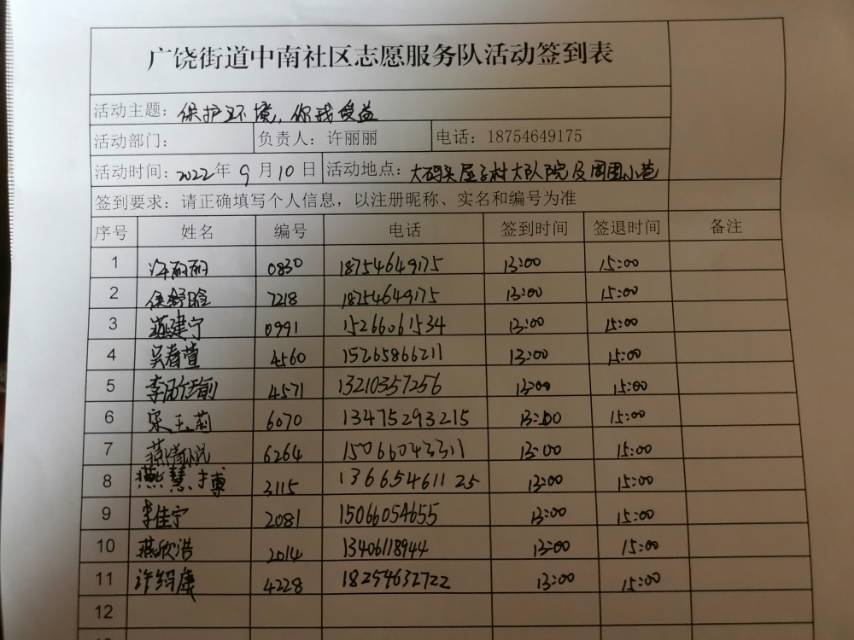 广饶街道中南社区志愿服务队活动签到表
活动主题：保护环境，你我受益
活动部门： 负责人：许丽丽 电话：18754649175
活动时间：2022年9月10日 活动地点：大码头屋子村大队院及周围小巷
签到要求：请正确填写个人信息，以注册昵称、实名和编号为准
序号 姓名 编号 电话 签到时间 签退时间 备注
1 许丽丽 0830 18754649175 13:00 15:00
2 7218 18254649175 13:00 15:00
3 燕建宁 0991 15266061534 13:00 15:00
4 吴春萱 4560 15265866211 13:00 15:00
5 4571 13210357256 13:00 15:00
6 宋玉莉 6070 13475293215 13:00 15:00
7 6264 15066043311 13:00 15:00
8 燕慧博 3115 13665461125 13:00 15:00
9 李佳宁 2081 15066054655 13:00 15:00
10 燕欣浩 2014 13406118944 13:00 15:00
11 许绍康 4228 18254632722 13:00 15:00
12